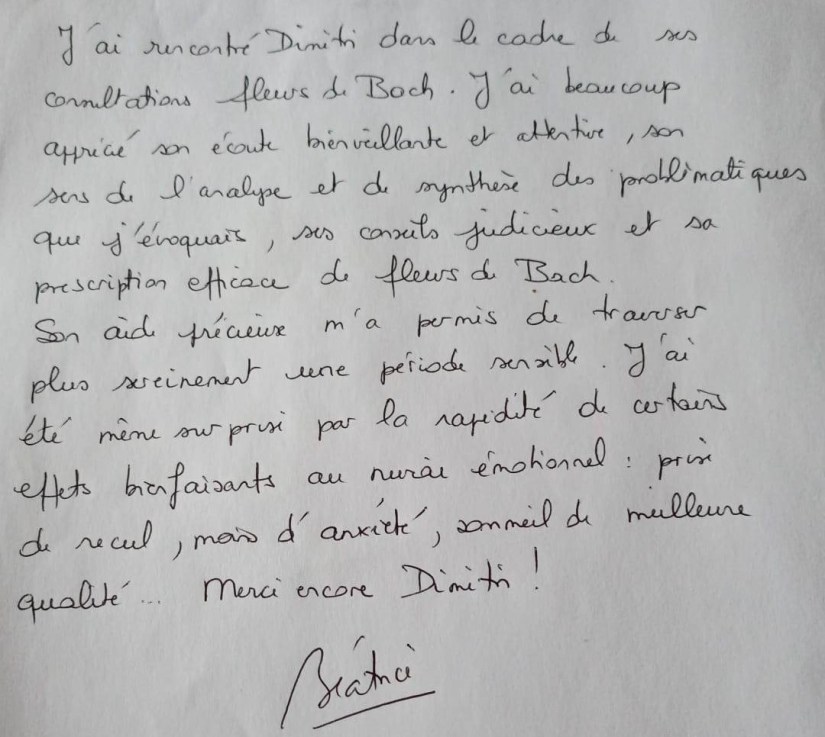 J'ai rencontré Dimitri dans le cadre de ses
consultations fleurs de Bach. J'ai beaucoup
apprécié son écoute bienveillante et attentive, son
sens de l'analyse et de synthèse des problématiques
que j'évoquais, ses conseils judicieux et sa
prescription efficace de fleurs de Bach.
Son aide précieuse m'a permis de traverser
plus sereinement une période sensible. J'ai
été même surprise par la rapidité de certains
effets bienfaisants au niveau émotionnel : prise
de recul, moins d'anxiété, sommeil de meilleure
qualité... Merci encore Dimitri !
Béatrice